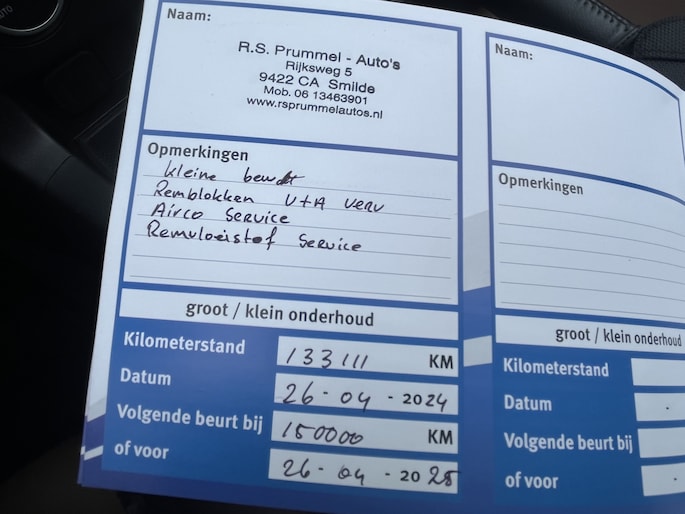 AUTO
Naam:
R.S. Prummel - Auto's
Rijksweg 5
9422 CA Smilde
Mob. 06 13463901
www.rsprummelautos.nl
Opmerkingen
kleine beurt
Remblokken V+A verv
Airco Service
Remvloeistof Service
groot / klein onderhoud
Kilometerstand 133111 KM
Datum 26-04-2024
Volgende beurt bij 150000 KM
of voor 26-04-2025
Naam:
Opmerkingen
groot / klein onderhoud
Kilometerstand
Datum
Volgende beurt bij
of voor